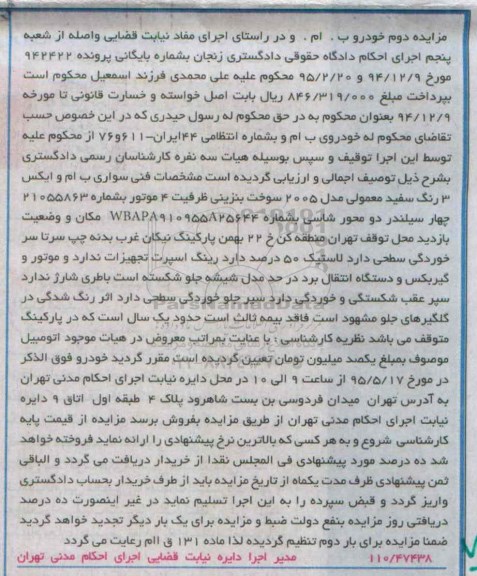 مزایده دوم خودرو ب . ام . و در راستای اجرای مفاد نیابت قضایی واصله از شعبه
پنجم اجرای احکام دادگاه حقوقی دادگستری زنجان بشماره بایگانی پرونده ۹۴۲۴۲۲
مورخ ۹۴/۱۲/۹ و ۹۵/۲/۲۰ محکوم علیه علی محمدی فرزند اسمعیل محکوم است
بپرداخت مبلغ ۸۴۶/۳۱۹/۰۰۰ ریال بابت اصل خواسته و خسارت قانونی تا مورخه
۹۴/۱۲/۹ بعنوان محکوم به در حق محکوم له رسول حیدری که در این خصوص حسب
تقاضای محکوم له خودروی ب ام و بشماره انتظامی ۴۴ایران-۶۱۱و۷۶ از محکوم علیه
توسط این اجرا توقیف و سپس بوسیله هیات سه نفره کارشناسان رسمی دادگستری
بشرح ذیل توصیف اجمالی و ارزیابی گردیده است مشخصات فنی سواری ب ام و ایکس
۳ رنگ سفید معمولی مدل ۲۰۰۵ سوخت بنزینی ظرفیت ۴ موتور بشماره ۲۱۰۵۵۸۶۳
چهار سیلندر دو محور شاسی بشماره WBAPA۹۱۰۹۵۵A۲۵۶۴۴ مکان و وضعیت
بازدید محل توقف تهران منطقه کن خ ۲۲ بهمن پارکینگ نیکان غرب بدنه چپ سرتا سر
خوردگی سطحی دارد لاستیک ۵۰ درصد دارد رینگ اسپرت تجهیزات ندارد و موتور و
گیربکس و دستگاه انتقال برد در حد مدل شیشه جلو شکسته است باطری شارژ ندارد
سپر عقب شکستگی و خوردگی دارد سپر جلو خوردگی سطحی دارد اثر رنگ شدگی در
گلگیرهای جلو مشهود است فاقد بیمه ثالث است حدود یک سال است که در پارکینگ
متوقف می باشد نظریه کارشناسی : با عنایت بمراتب معروض در هیات موجود اتومبیل
موصوف بمبلغ یکصد میلیون تومان تعیین گردیده است مقرر گردید خودرو فوق الذکر
در مورخ ۹۵/۵/۱۷ از ساعت ۹ الی ۱۰ در محل دایره نیابت اجرای احکام مدنی تهران
به آدرس تهران میدان فردوسی بن بست شاهرود پلاک ۴ طبقه اول اتاق ۹ دایره
نیابت اجرای احکام مدنی تهران از طریق مزایده بفروش برسد مزایده از قیمت پایه
کارشناسی شروع و به هر کسی که بالاترین نرخ پیشنهادی را ارائه نماید فروخته خواهد
شد ده درصد مورد پیشنهادی فی المجلس نقدا از خریدار دریافت می گردد و الباقی
ثمن پیشنهادی ظرف مدت یکماه از تاریخ مزایده باید از طرف خریدار بحساب دادگستری
واریز گردد و قبض سپرده را به این اجرا تسلیم نماید در غیر اینصورت ده درصد
دریافتی روز مزایده بنفع دولت ضبط و مزایده برای یک بار دیگر تجدید خواهد گردید
ضمنا مزایده برای بار دوم تنظیم گردیده لذا ماده ۱۳۱ ق اام رعایت می گردد
۱۱۰/۴۷۴۳۸ مدیر اجرا دایره نیابت قضایی اجرای احکام مدنی تهران